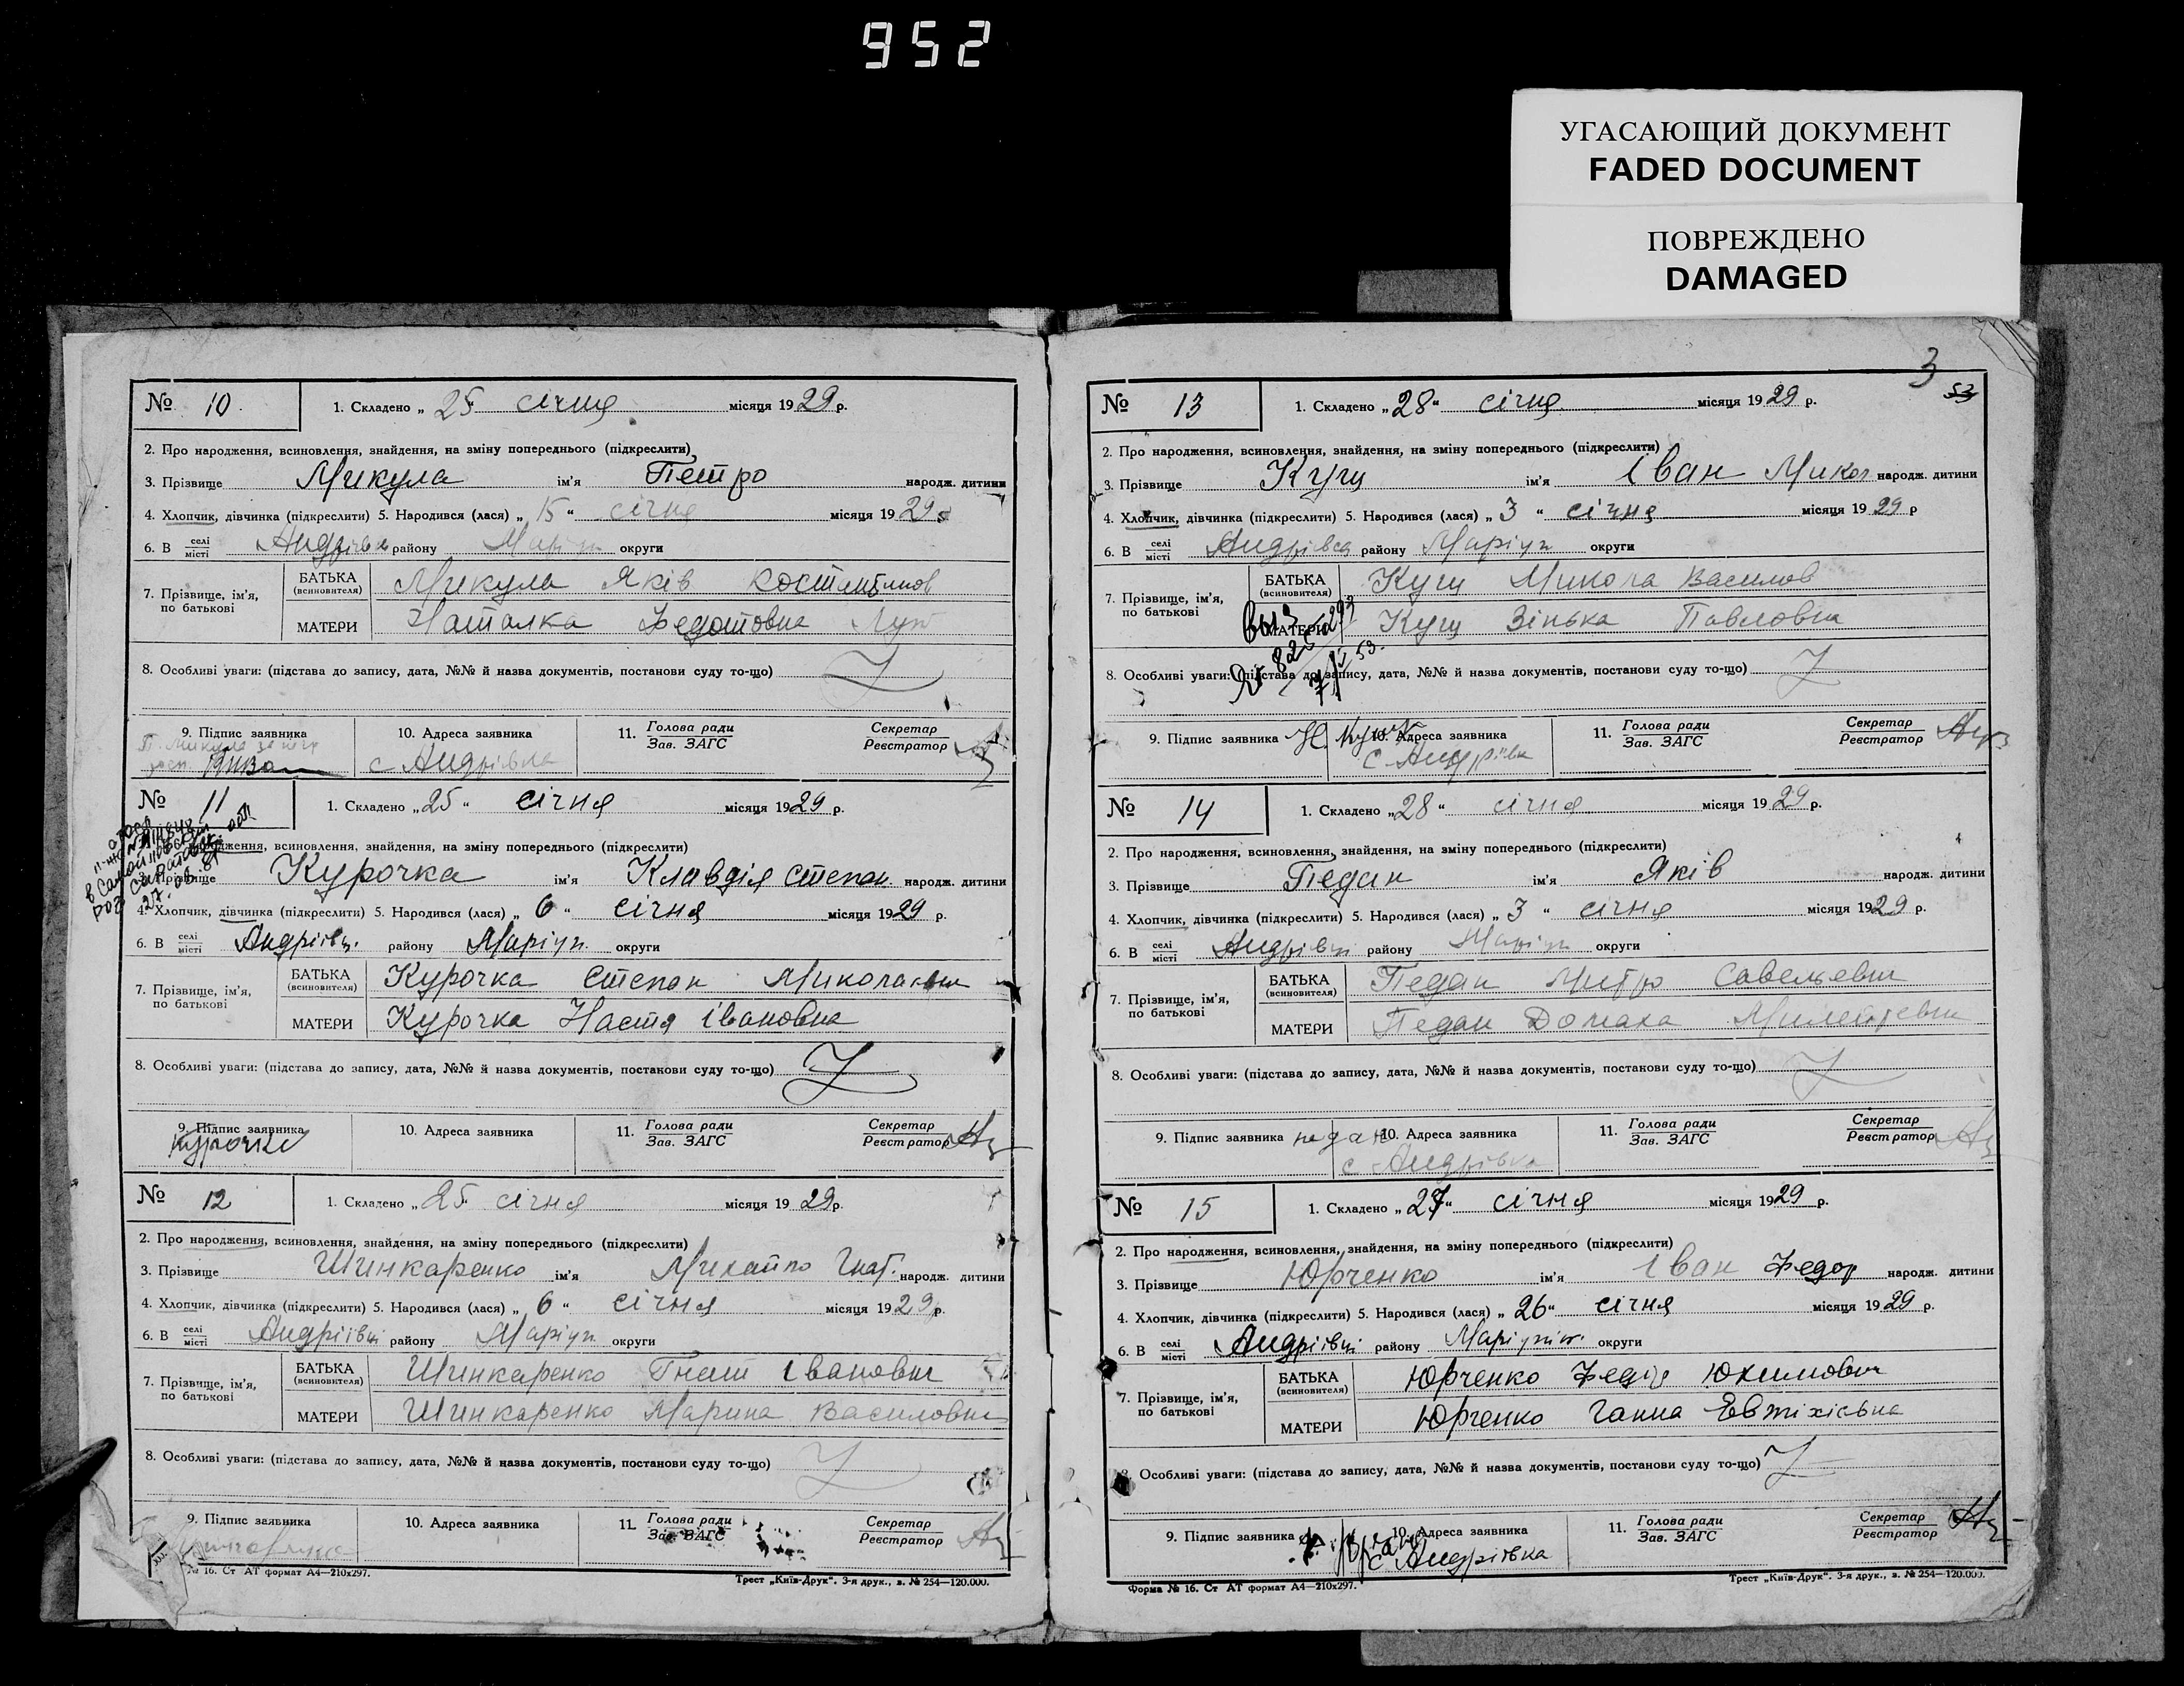 952
УГАСАЮЩИЙ ДОКУМЕНТ
FADED DOCUMENT
ПОВРЕЖДЕНО
DAMAGED
№ 10. 1. Складено „25“ січня місяця 1929 р.
2. Про народження, всиновлення, знайдення, на зміну попереднього (підкреслити)
3. Прізвище Микула ім'я Петро народж. дитини
4. Хлопчик, дівчинка (підкреслити) 5. Народився (лася) „15“ січня місяця 1929
6. В селі місті Андріївці району Маріуп округи
7. Прізвище, ім'я, по батькові
БАТЬКА (всиновителя) Микула Яків
МАТЕРИ Наталка Федотовна
8. Особливі уваги: (підстава до запису, дата, №№ й назва документів, постанови суду то-що)
9. Підпис заявника 10. Адреса заявника 11. Голова ради Зав. ЗАГС Секретар Реєстратор
с Андріївка
№ 11 1. Складено „25“ січня місяця 1929 р.
народження, всиновлення, знайдення, на зміну попереднього (підкреслити)
3. Прізвище Курочка ім'я Клавдія Степан. народж. дитини
27.03.81
4. Хлопчик, дівчинка (підкреслити) 5. Народився (лася) „6“ січня місяця 1929 р.
6. В селі місті Андріївц. району Маріуп округи
7. Прізвище, ім'я, по батькові
БАТЬКА (всиновителя) Курочка Степан
МАТЕРИ Курочка Настя Івановна
8. Особливі уваги: (підстава до запису, дата, №№ й назва документів, постанови суду то-що)
9. Підпис заявника 10. Адреса заявника 11. Голова ради Зав. ЗАГС Секретар Реєстратор
Курочка
№ 12 1. Складено „25 січня місяця 1929 р.
2. Про народження, всиновлення, знайдення, на зміну попереднього (підкреслити)
3. Прізвище Шинкаренко ім'я Михайло Гнат. народж. дитини
4. Хлопчик, дівчинка (підкреслити) 5. Народився (лася) „6“ січня місяця 1929 р.
6. В селі місті Андріївці району Маріуп округи
7. Прізвище, ім'я, по батькові
БАТЬКА (всиновителя) Шинкаренко Гнат Іванович
МАТЕРИ Шинкаренко Марина Василовна
8. Особливі уваги: (підстава до запису, дата, №№ й назва документів, постанови суду то-що)
9. Підпис заявника 10. Адреса заявника 11. Голова ради Зав. ЗАГС Секретар Реєстратор
№ 16. Ст АТ формат А4—210x297. Трест „Київ-Друк“. 3-я друк., з. № 254—120.000.
3
53
№ 13 1. Складено „28“ січня місяця 1929 р.
2. Про народження, всиновлення, знайдення, на зміну попереднього (підкреслити)
3. Прізвище Кущ ім'я Іван Микол народж. дитини
4. Хлопчик, дівчинка (підкреслити) 5. Народився (лася) „3“ січня місяця 1929 р
6. В селі місті Андрівца району Маріуп округи
7. Прізвище, ім'я, по батькові
БАТЬКА (всиновителя) Кущ Микола Василов
МАТЕРИ Кущ Зінька Павловна
8. Особливі уваги: (підстава до запису, дата, №№ й назва документів, постанови суду то-що)
9. Підпис заявника 10. Адреса заявника 11. Голова ради Зав. ЗАГС Секретар Реєстратор
с. Андріівка
№ 14 1. Складено „28“ січня місяця 1929 р.
2. Про народження, всиновлення, знайдення, на зміну попереднього (підкреслити)
3. Прізвище Педан ім'я Яків народж. дитини
4. Хлопчик, дівчинка (підкреслити) 5. Народився (лася) „3“ січня місяця 1929 р.
6. В селі місті Андрівці району Маріуп округи
7. Прізвище, ім'я, по батькові
БАТЬКА (всиновителя) Педан Митро Савельевич
МАТЕРИ Педан Домаха
8. Особливі уваги: (підстава до запису, дата, №№ й назва документів, постанови суду то-що)
9. Підпис заявника педан 10. Адреса заявника 11. Голова ради Зав. ЗАГС Секретар Реєстратор
с Андрівка
№ 15 1. Складено „27“ січня місяця 1929 р.
2. Про народження, всиновлення, знайдення, на зміну попереднього (підкреслити)
3. Прізвище Юрченко ім'я Іван Федор народж. дитини
4. Хлопчик, дівчинка (підкреслити) 5. Народився (лася) „26“ січня місяця 1929 р.
6. В селі місті Андріівці району округи
7. Прізвище, ім'я, по батькові
БАТЬКА (всиновителя) Юрченко Федір Юхимович
МАТЕРИ Юрченко Ганна Евтіхієвна
8. Особливі уваги: (підстава до запису, дата, №№ й назва документів, постанови суду то-що)
9. Підпис заявника 10. Адреса заявника 11. Голова ради Зав. ЗАГС Секретар Реєстратор
с Андріівка
Форма № 16. Ст АТ формат А4—210x297. Трест „Київ-Друк“. 3-я друк., з. № 254—120.000.